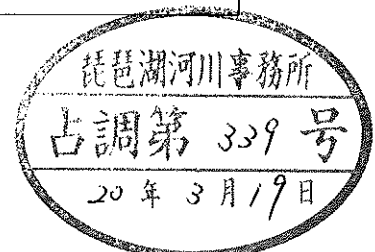 琵琶湖河川事務所
占調第 339 号
20 年 3 月 19 日